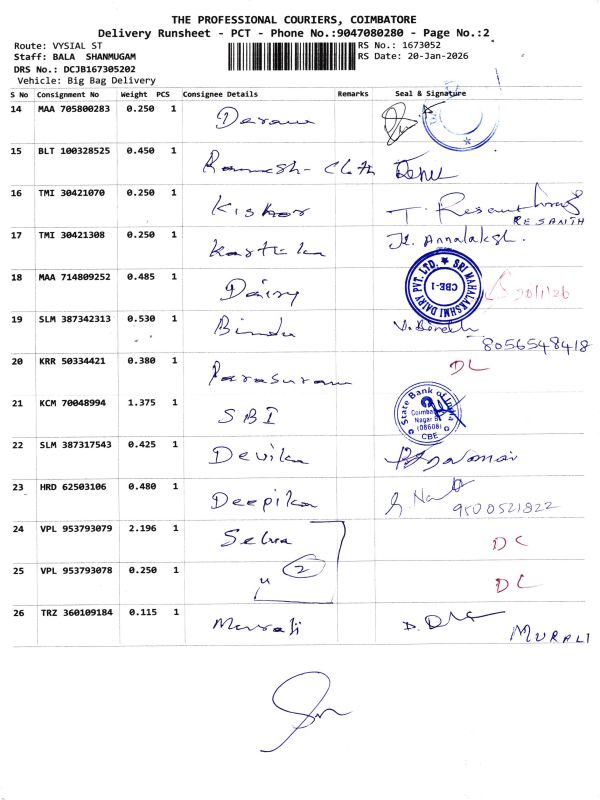 THE PROFESSIONAL COURIERS, COIMBATORE
Delivery Runsheet - PCT - Phone No.:9047080280 - Page No.:2
Route: VYSIAL ST
Staff: BALA SHANMUGAM
DRS No.: DCJB167305202
Vehicle: Big Bag Delivery
RS No.: 1673052
RS Date: 20-Jan-2026
S No Consignment No Weight PCS Consignee Details Remarks Seal & Signature
14 MAA 705800283 0.250 1
15 BLT 100328525 0.450 1 Ramesh - Cloth
16 TMI 30421070 0.250 1 Kishor
RESANTH
17 TMI 30421308 0.250 1 Karthika
18 MAA 714809252 0.485 1 Dairy SRI MAHALAKSHMI DAIRY PVT. LTD. CBE-1 20/1/26
19 SLM 387342313 0.530 1 Bindu
8056548418
20 KRR 50334421 0.380 1 Parasuram DL
21 KCM 70048994 1.375 1 SBI State Bank of India Coimbatore Nagar Br (08608) CBE
22 SLM 387317543 0.425 1 Devika
23 HRD 62503106 0.480 1 Deepika
9500521822
24 VPL 953793079 2.196 1 Selva DC
25 VPL 953793078 0.250 1 " 2 DC
26 TRZ 360109184 0.115 1 Murali
MURALI